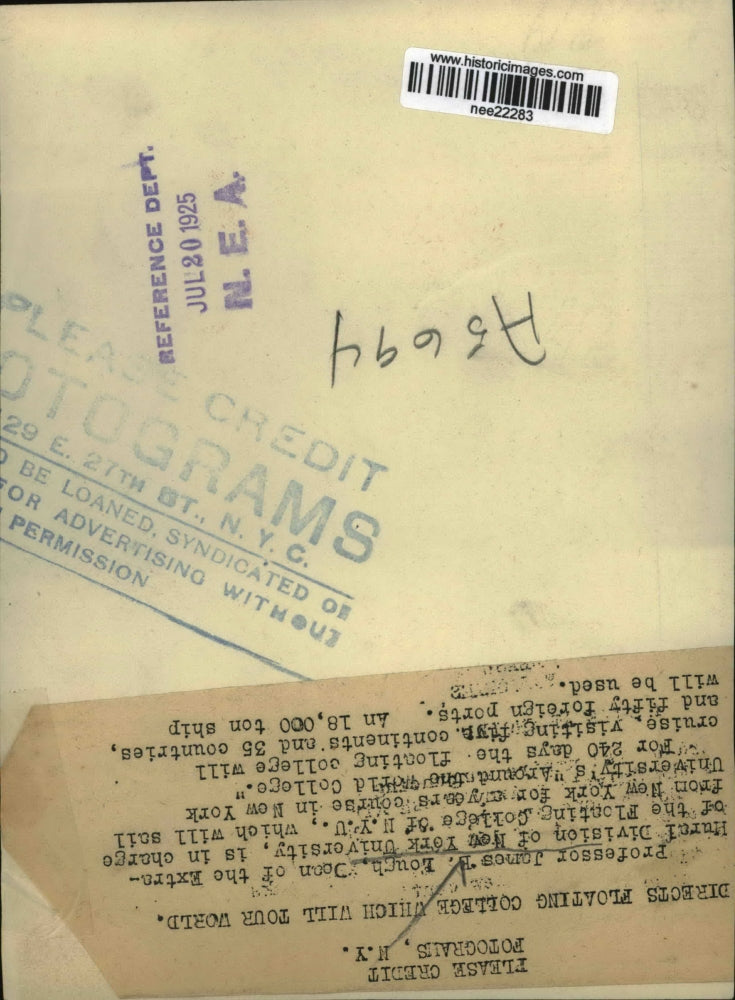 www.historicimages.com
nee22283
REFERENCE DEPT.
JUL 20 1925
N. E. A.
A5694
PLEASE CREDIT
OTOGRAMS
29 E. 27TH ST., N. Y. C.
O BE LOANED, SYNDICATED OR
FOR ADVERTISING WITHOUT
PERMISSION
PLEASE CREDIT
FOTOGRAMS, N.Y.
DIRECTS FLOATING COLLEGE WHICH WILL TOUR WORLD.
Professor James E. Lough, Dean of the Extra-
Mural Division of New York University, is in charge
of the Floating College of N.Y.U., which will sail
from New York for a years course in New York
University's "Around the World College."
For 240 days the floating college will
cruise, visiting five continents and 35 countries,
and fifty foreign ports. An 18,000 ton ship
will be used.